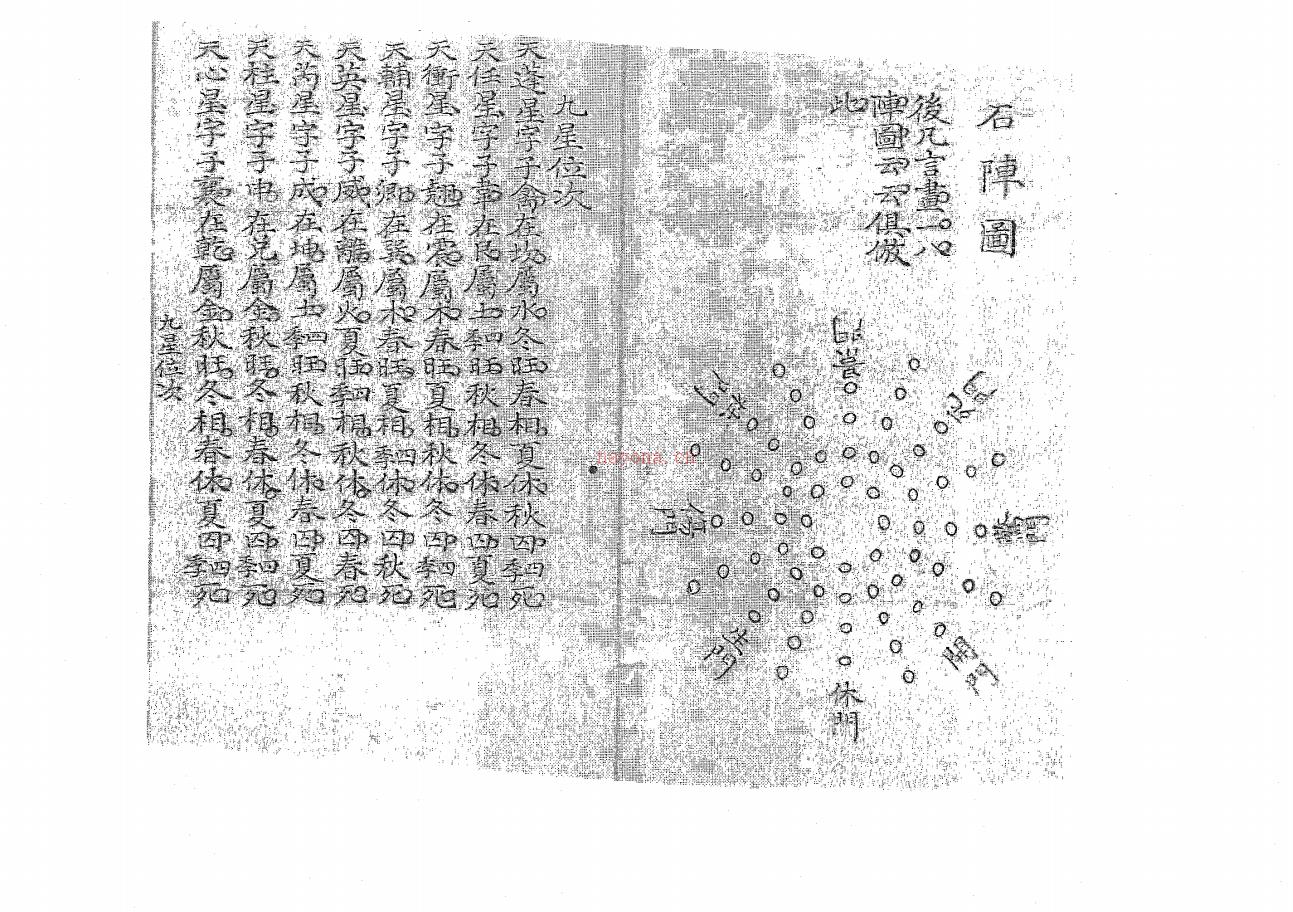 石陣圖
後凡言畫一八
陣圖云云俱倣
此
景門
死門
杜門
驚門
傷門
開門
生門
休門
九星位次
天蓬星字子禽在坎屬水冬旺春相夏休秋囚四季死
天任星字子韋在艮屬土四季旺秋相冬休春囚夏死
天衝星字子翹在震屬木春旺夏相秋休冬囚四季死
天輔星字子卿在巽屬木春旺夏相四季休冬囚秋死
天英星字子威在離屬火夏旺四季相秋休冬囚春死
天芮星字子成在坤屬土四季旺秋相冬休春囚夏死
天柱星字子申在兌屬金秋旺冬相春休夏囚四季死
天心星字子襄在乾屬金秋旺冬相春休夏囚四季死
九星位次
nayona.cn